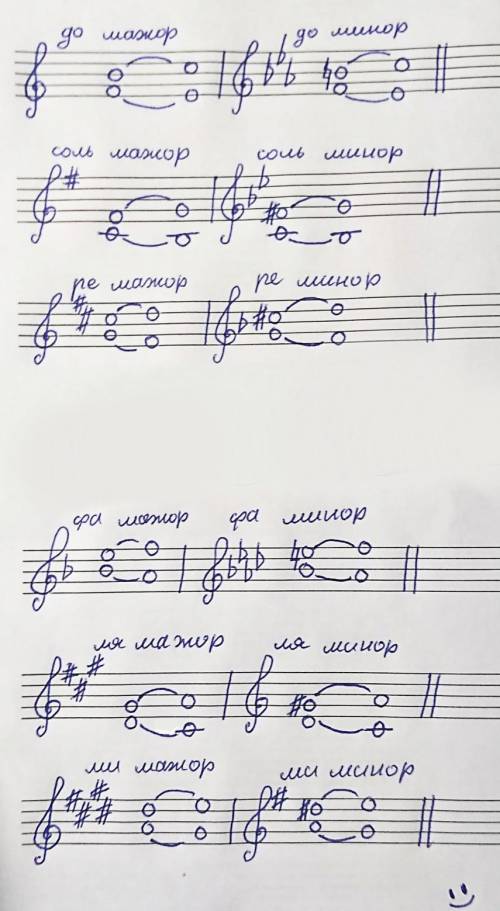 до мажор до минор
соль мажор соль минор
ре мажор ре минор
фа мажор фа минор
ля мажор ля минор
ми мажор ми минор